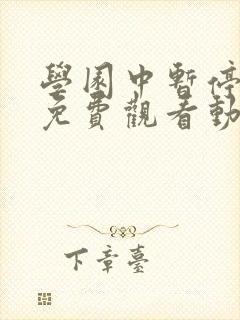 學園中暫停
免費觀看動
下章臺